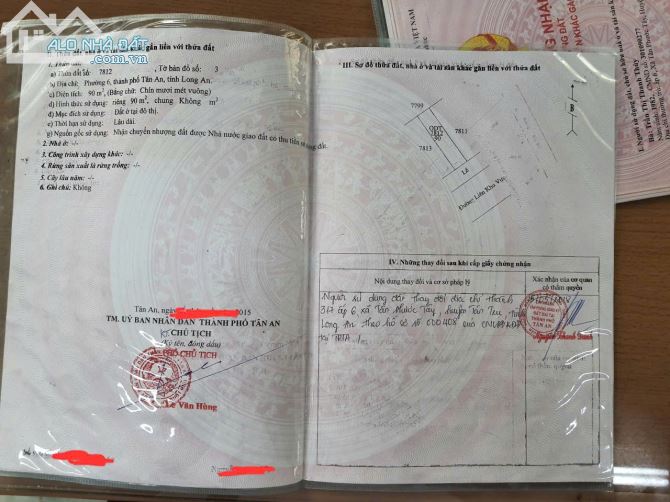 ALO NHÀ ĐẤT
, nhà ở và tài sản khác gắn liền với thửa đất
1. Thửa đất:
a) Thửa đất số: 7812 , Tờ bản đồ số: 3
b) Địa chỉ: Phường 6, thành phố Tân An, tỉnh Long An.
c) Diện tích: 90 m², (Bằng chữ: Chín mươi mét vuông)
d) Hình thức sử dụng: riêng 90 m², chung Không m²
đ) Mục đích sử dụng: Đất ở tại đô thị.
e) Thời hạn sử dụng: Lâu dài
g) Nguồn gốc sử dụng: Nhận chuyển nhượng đất được Nhà nước giao đất có thu tiền sử dụng đất.
2. Nhà ở: -/-
3. Công trình xây dựng khác: -/-
4. Rừng sản xuất là rừng trồng: -/-
5. Cây lâu năm: -/-
6. Ghi chú: Không
Tân An, 2015
TM. UỶ BAN NHÂN DÂN THÀNH PHỐ TÂN AN
CHỦ TỊCH
(Ký tên, đóng dấu)
PHÓ CHỦ TỊCH
Lê Văn Hùng
III. Sơ đồ thửa đất, nhà ở và tài sản khác gắn liền với thửa đất
7799
ODT
7812
90
7811
7813
Lề
Đường Liên Khu Vực
IV. Những thay đổi sau khi cấp giấy chứng nhận
Nội dung thay đổi và cơ sở pháp lý
Xác nhận của cơ quan
có thẩm quyền
Người sử dụng đất thay đổi địa chỉ thành
317 ấp 6, xã Tân Phước Tây, huyện Tân Trụ, tỉnh
Long An theo hồ sơ số
TÂN AN
Nguyễn Thanh
VIỆT NAM
I. Người sử dụng đất, chủ sở hữu nhà ở và tài sản khác
Bà: Trần Thị Thanh Thúy